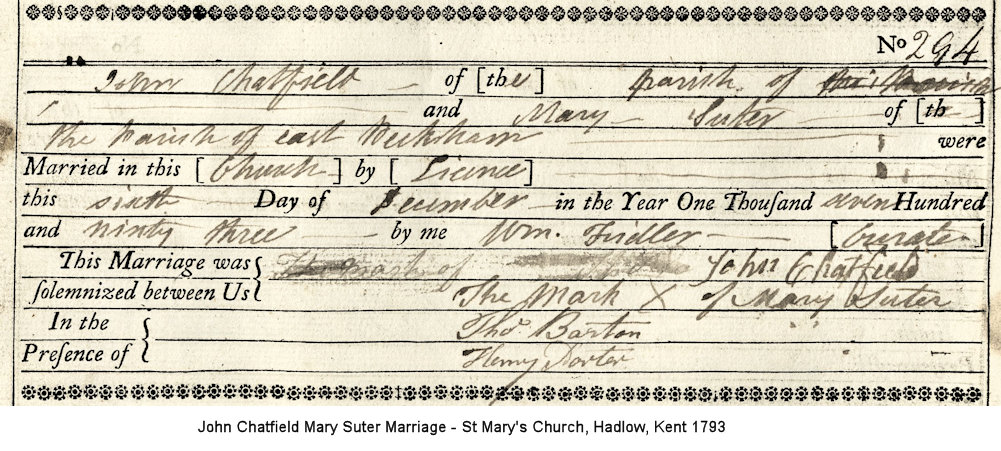 No 294
John Chatfield of [the] parish of
and Mary Suter of [th ]
the Parish of east Peckham were
Married in this [Church] by [Licence]
this sixth Day of December in the Year One Thouſand seven Hundred
and ninty three by me Wm. Fidler [Curate]
This Marriage was mark of John Chatfield
ſolemnized between Us The Mark X of Mary Suter
In the Thos. Barton
Preſence of Henry Porter
John Chatfield Mary Suter Marriage - St Mary's Church, Hadlow, Kent 1793